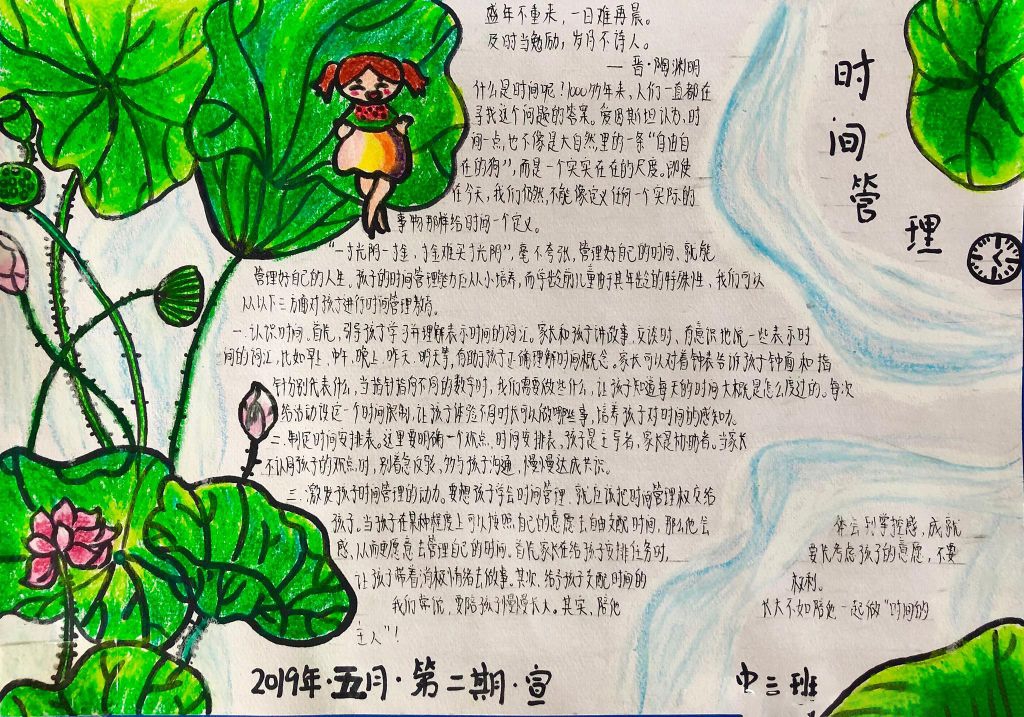 时间管理
盛年不重来，一日难再晨。
及时当勉励，岁月不待人。
— 晋·陶渊明
什么是时间呢！1000多年来，人们一直都在
寻找这个问题的答案。爱因斯坦认为，时
间一点，也不像是大自然里的一条“自由自
在的狗”，而是一个实实在在的尺度。即使
在今天，我们仍然不能像定义任何一个实际的
事物那样给时间一个定义。
“一寸光阴一寸金，寸金难买寸光阴”，毫不夸张，管理好自己的时间，就能
管理好自己的人生。孩子的时间管理能力应从小培养，而学龄前儿童由于其年龄的特殊性，我们可以
从以下三方面对孩子进行时间管理教育。
一.认识时间。首先，引导孩子学习并理解表示时间的词汇。家长和孩子讲故事、交谈时，有意识地说一些表示时
间的词汇，比如早上、中午、晚上、昨天、明天等，有助于孩子正确理解时间概念。家长可以对着钟表告诉孩子钟面和指
针分别代表什么，当指针指向不同的数字时，我们需要做些什么，让孩子知道每天的时间大概是怎么度过的。每次
给活动设定一个时间限制，让孩子体验不同时长可以做哪些事，培养孩子对时间的感知力。
二.制定时间安排表。这里要明确一个观点，时间安排表，孩子是主导者，家长是协助者。当家长
不认同孩子的观点时，别着急反驳，多与孩子沟通，慢慢达成共识。
三.激发孩子时间管理的动力。要想孩子学会时间管理，就应该把时间管理权交给
孩子。当孩子在某种程度上可以按照自己的意愿去自由支配时间，那么他会 体会到掌控感，成就
感，从而更愿意去管理自己的时间。首先，家长在给孩子安排任务时， 要先考虑孩子的意愿，不要
让孩子带着消极情绪去做事。其次，给予孩子支配时间的 权利。
我们常说，要陪孩子慢慢长大。其实，陪他 长大不如陪他一起做“时间的
主人”！
2019年·五月·第二期·宣 中三班